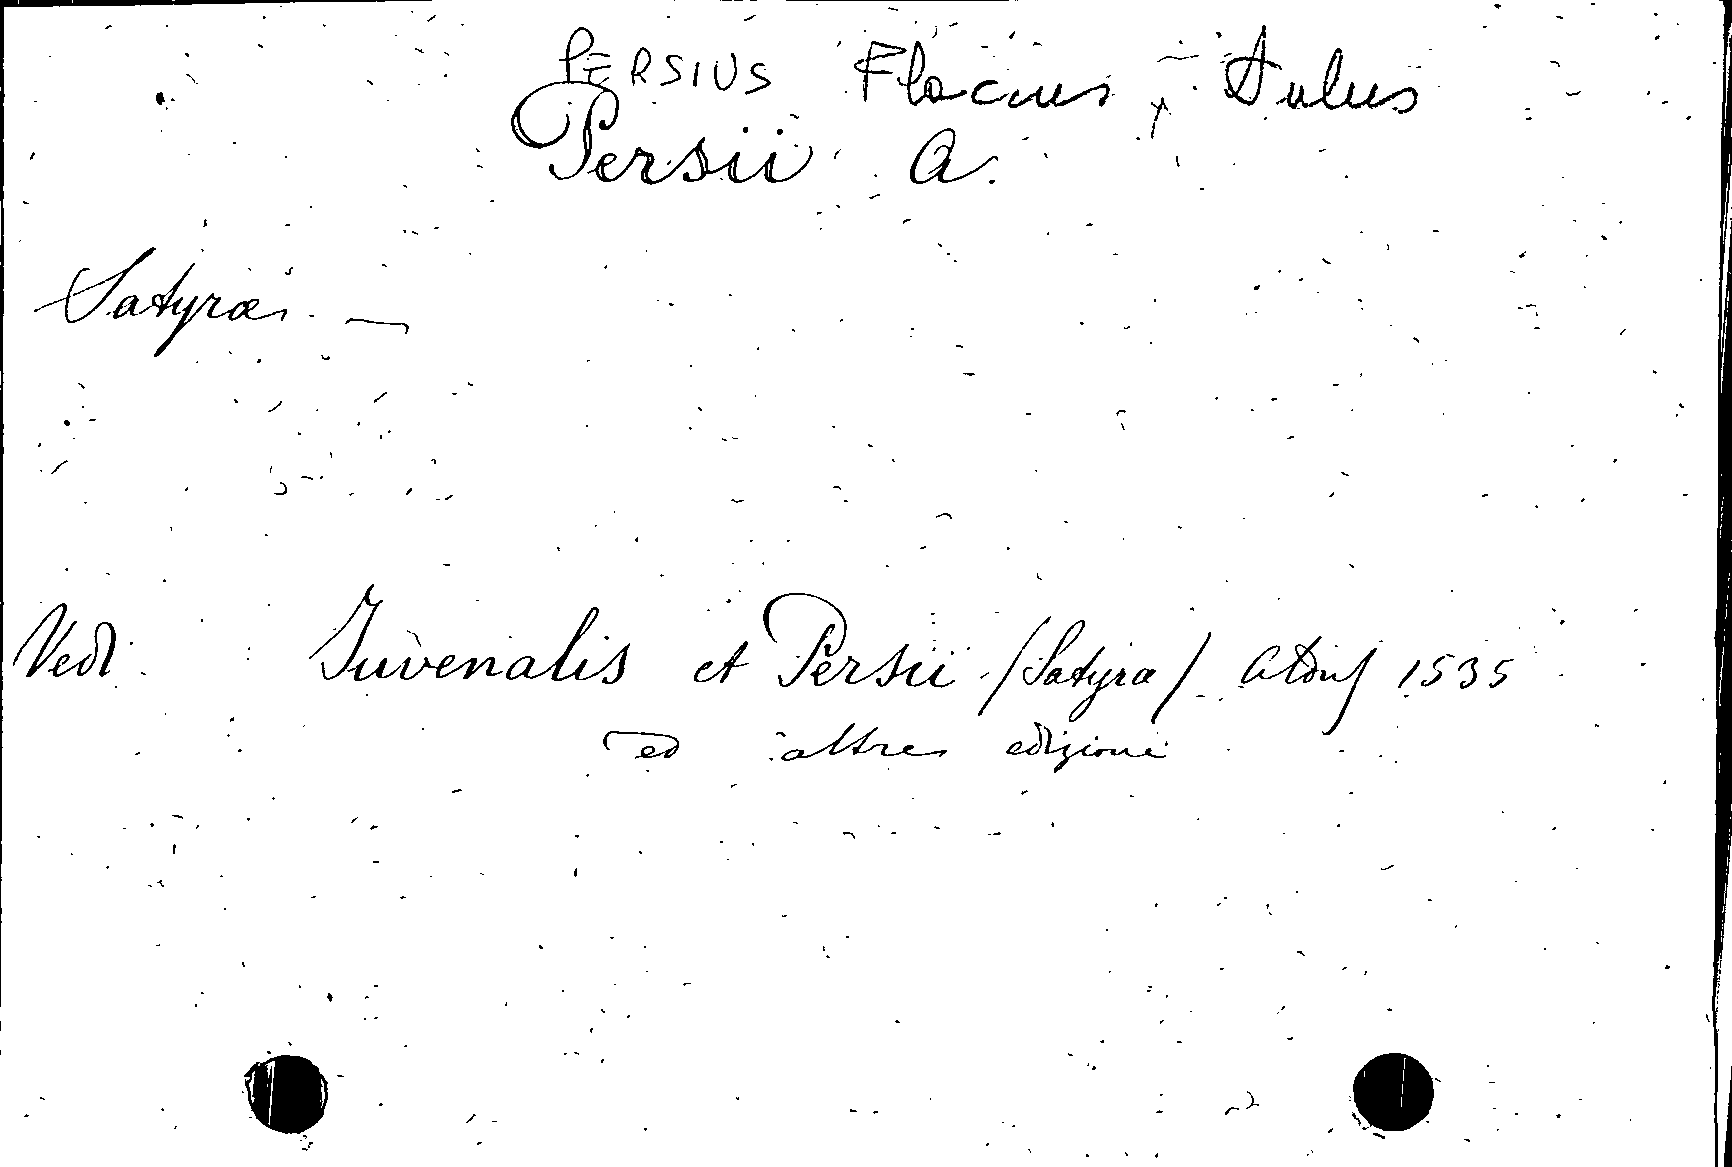 PERSIUS Flaccus, Aulus
Persii A.
Satyræ. —
Vedi Juvenalis et Persii (Satyra) 1535
ed altre edizioni